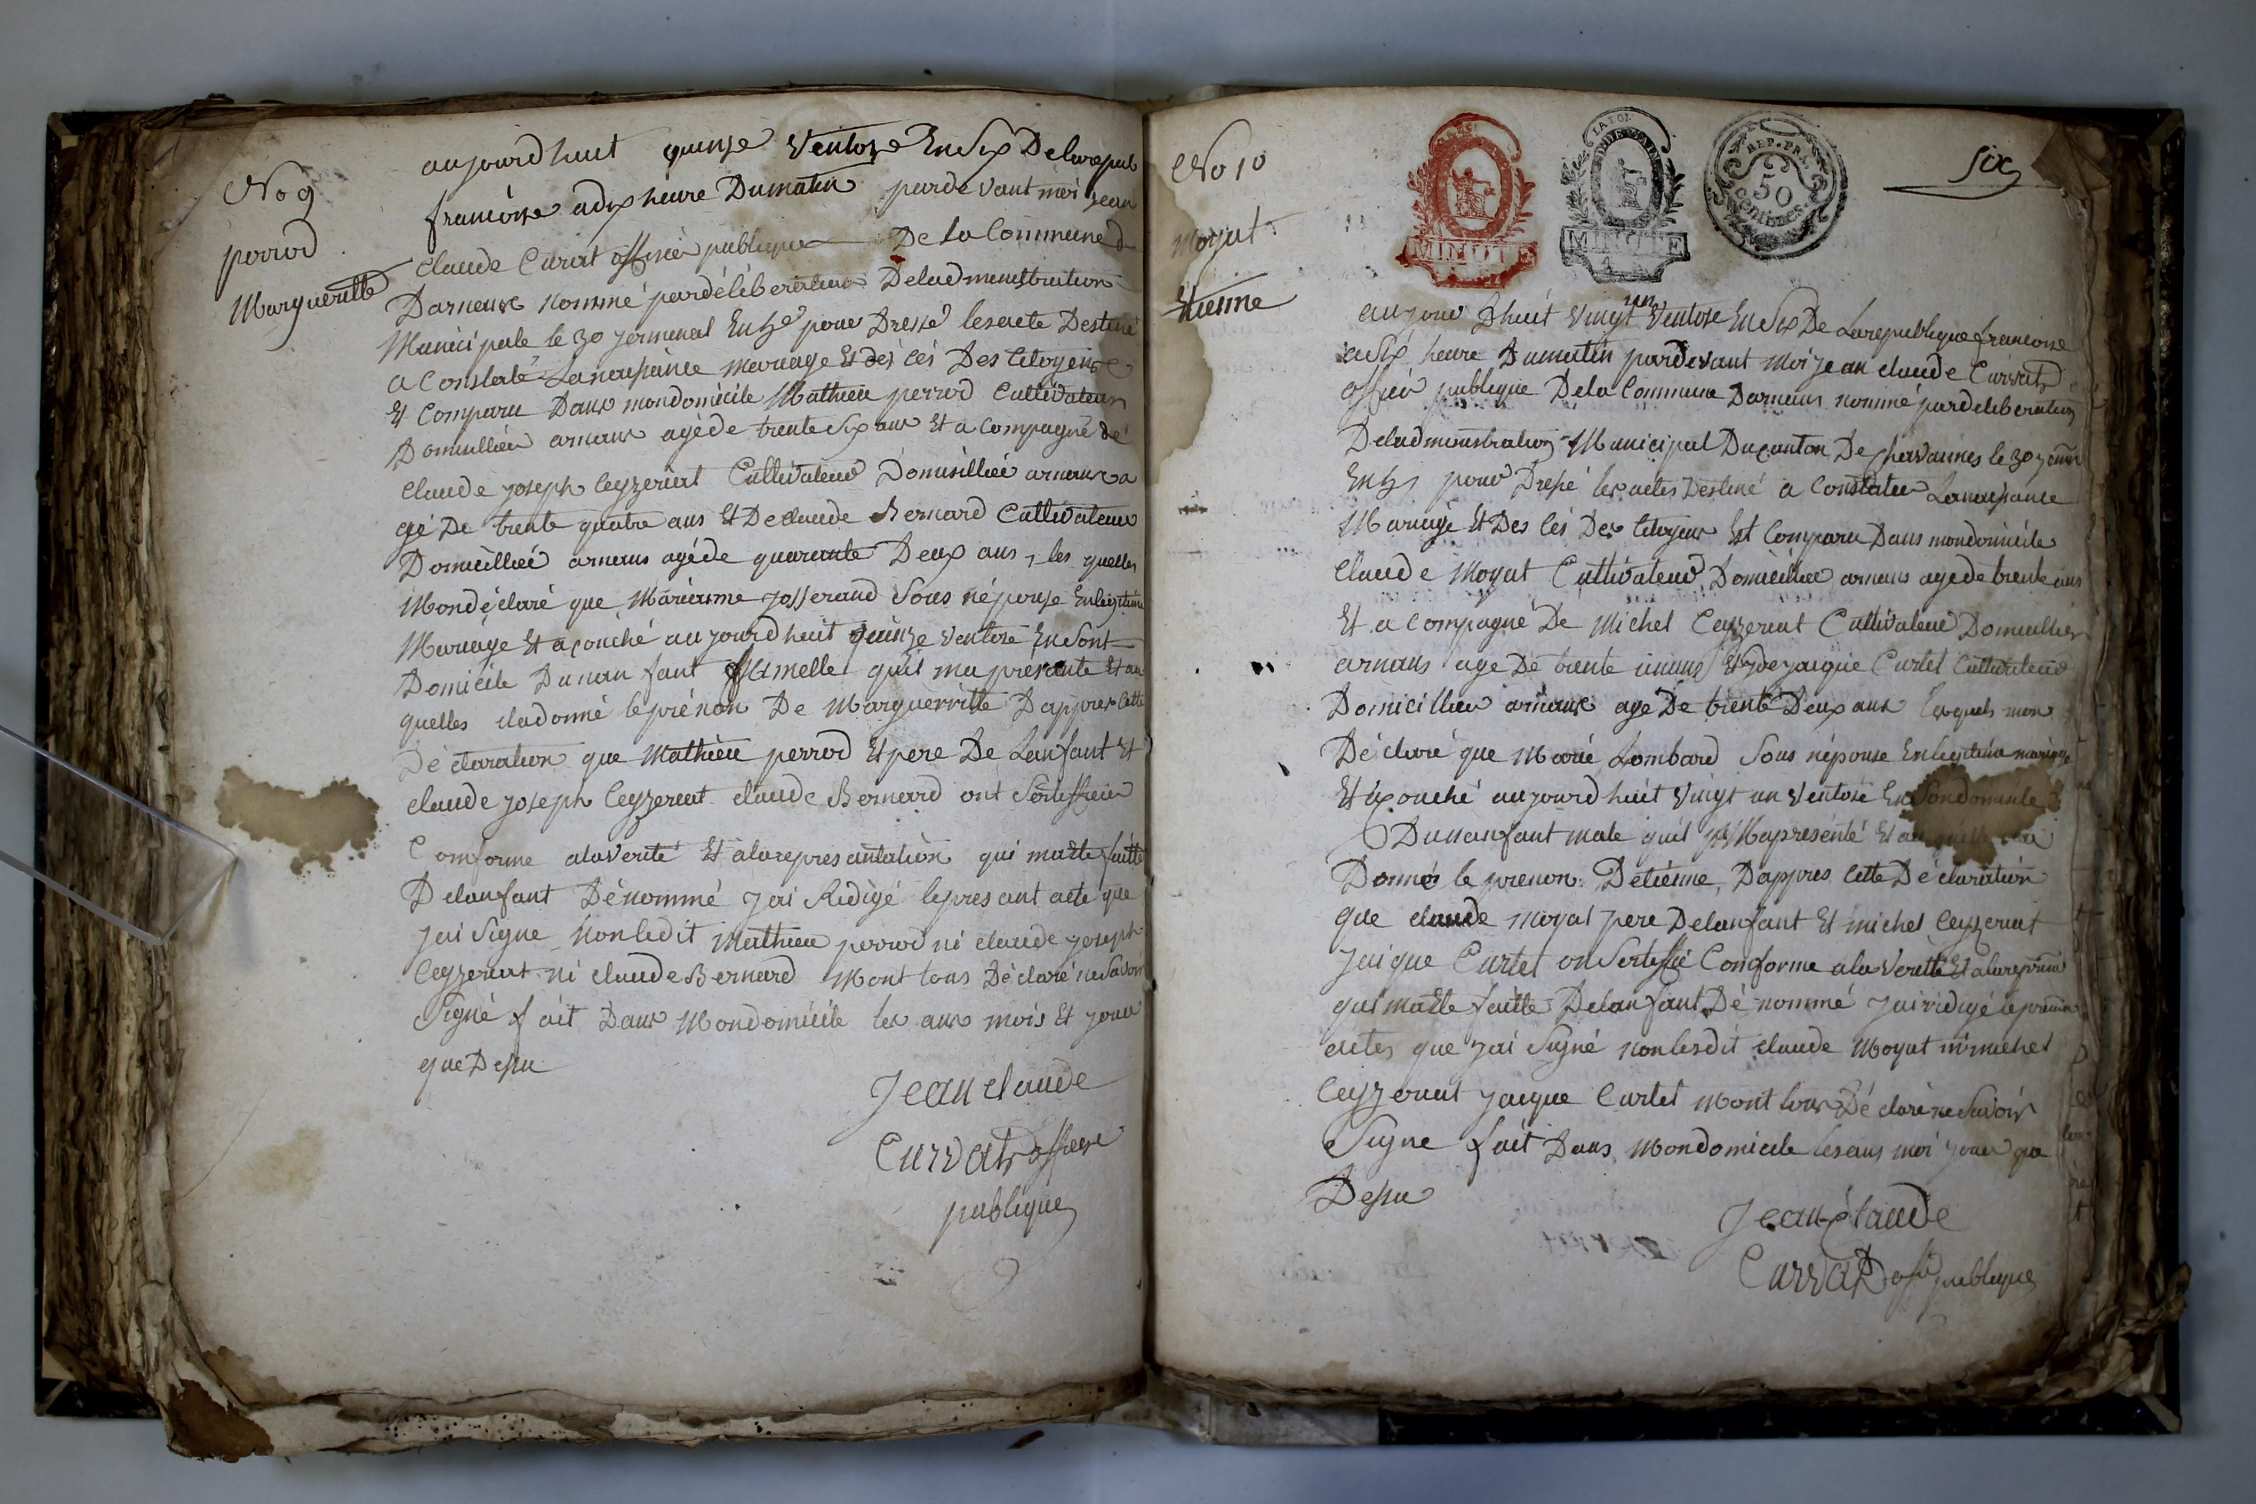 No 9
perrod
Margueritte
aujourdhuit quinze Ventose En Six De larepub
francoise adix heure Dumatin pardevant moi jean
claude Curvat officié publique De La Commune d
Darnans nommé pardélibération Deladmenistration
Municipale le 30 jerminal En 5e pour Dressé lesacte Destiné
a Constaté Lanaisance mariage Et des cés Des Citoyens
Et Comparu Dans mondomicile Mathieu perrod Cultivateur
Domicilliée arnans agéde trente Six ans Et a compagné dé
claude joseph Ceyzeriat Cultivateur Domicilliée arnans a
gé De trente quatre ans Et De claude Bernard Cultivateur
Domicilliée arnans agéde quarante Deux ans, les quelles
Mondéclaré que Marianne josserand Sous népouse Enlegitime
Mariage Et acouché aujourdhuit quinze Ventose En Sont
Domicile Dunan fant famelle quil ma présanté Et au
quelles iladonné leprénom De Marguerritte Dapprés Cette
Déclaration que Mathieu perrod Et pere De Lanfant Et
claude joseph Ceyzeriat claude Bernard ont Sertiffiée
Comforme alaverité Et alarepresantation qui maEte faitte
Delanfant Dénommé jai Redigé lepresant acte que
jai Signe Nonledit Mathieu perrod ni claude joseph
Ceyzeriat ni claude Bernard Mont tous Déclaré ne Savoir
Signé fait Dans Mondomicile les ans mois Et jour
que Desu
Jean claude
Curvat officier
publique
No 10
Moyat
Etienne
MINUTE
MINUTE
REP. FRA.
50
centimes
Six
aujour Dhuit Vingt un Ventose En Six De Larepublique francoise
a Six heure Dumatin pardevant Moi jean claude Curvat
officié publique Dela Commune Darnans nommé pardeliberation
Deladministration Municipal Ducanton De chavannes le 30 jermi
En 5 pour Dressé les actes Destiné a Constatée Lanaisance
Mariage Et Des cés Des Citoyens Est Comparu Dans mondomicile
Claude Moyat Cultivateur Domicilliée arnans agede trente ans
Et a compagné De Michel Ceyzeriat Cultivateur Domicilliée
arnans age De trente Et De jacque Curtet Cultivateur
Domicilliée arnans age De trente Deux ans lesquels mon
Déclaré que Marié Lombard Sous népouse Enlegitime mariage
Et acouché aujourdhuit Vingt un Ventose En Sondomicile
Dunanfant male quil Mapresenté Et
Donné le prenom Détiénne, Dappres Cette Déclaration
que claude Moyat pere Delanfant Et michel Ceyzeriat
jaique Curtet on Sertiffié Comforme ala Verité Et alarepresan
qui maEte faitte Delanfant Dénommé jai ridigé lepresan
actes que jai Signé nonlesdit claude Moyat ni michel
Ceyzeriat jacque Curtet Mont tous Déclaré ne Savoir
Signe fait Dans Mondomicile lesans moi jour que
Desu
Jean Claude
Curvat ofié publique